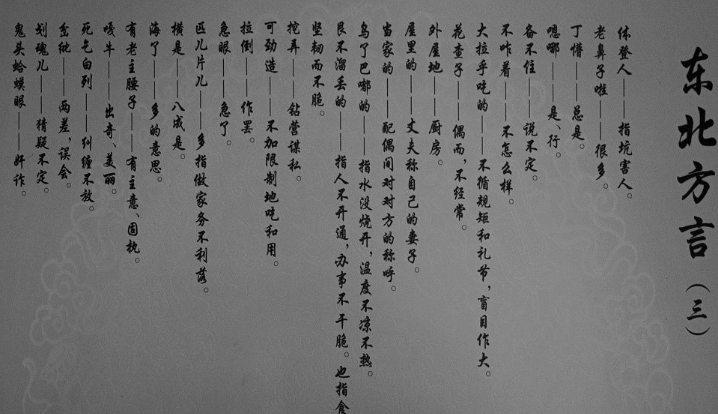 东北方言（三）
体登人——指坑害人。
老鼻子啦——很多。
丁憯——总是。
嗯哪——是，行。
备不住——说不定。
不咋着——不怎么样。
大拉乎吃的——不循规矩和礼节，盲目作大。
花查子——偶而，不经常。
外屋地——厨房。
屋里的——丈夫称自己的妻子。
当家的——配偶间对对方的称呼。
乌了巴嘟的——指水没烧开，温度不凉不热。
艮不溜丢的——指人不开通，办事不干脆。也指食
坚韧而不脆。
挖弄——钻营谋私。
可劲造——不加限制地吃和用。
拉倒——作罢。
急眼——急了。
匹儿片儿——多指做家务不利落。
横是——八成是。
海了——多的意思。
有老主腰子——有主意、固执。
嘎牛——出奇、美丽。
死乞白列——纠缠不放。
岔纰——两差，误会。
划魂儿——猜疑不定。
鬼头蛤蟆眼——奸诈。